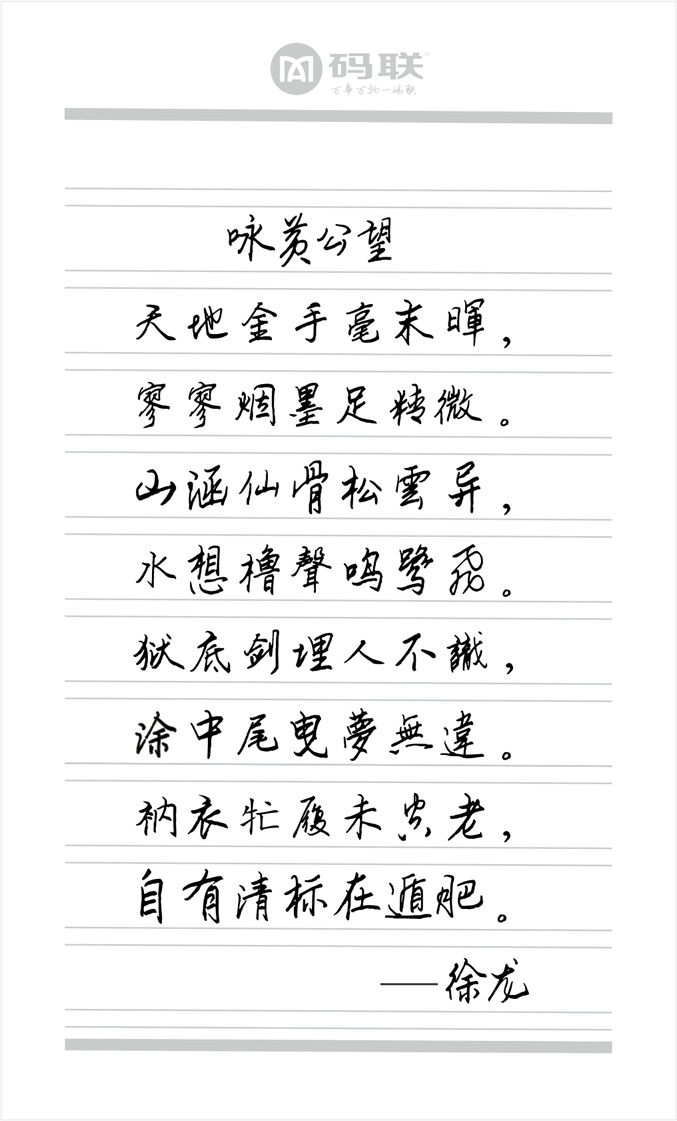 码联
万事万物一码联
咏黄公望
天地金手毫末暉，
寥寥烟墨足精微。
山涵仙骨松雲异，
水想櫓聲鸣鹭飛。
狱底剑埋人不識，
涂中尾曳夢無違。
衲衣芒履未岂老，
自有清标在遁肥。
——徐龙